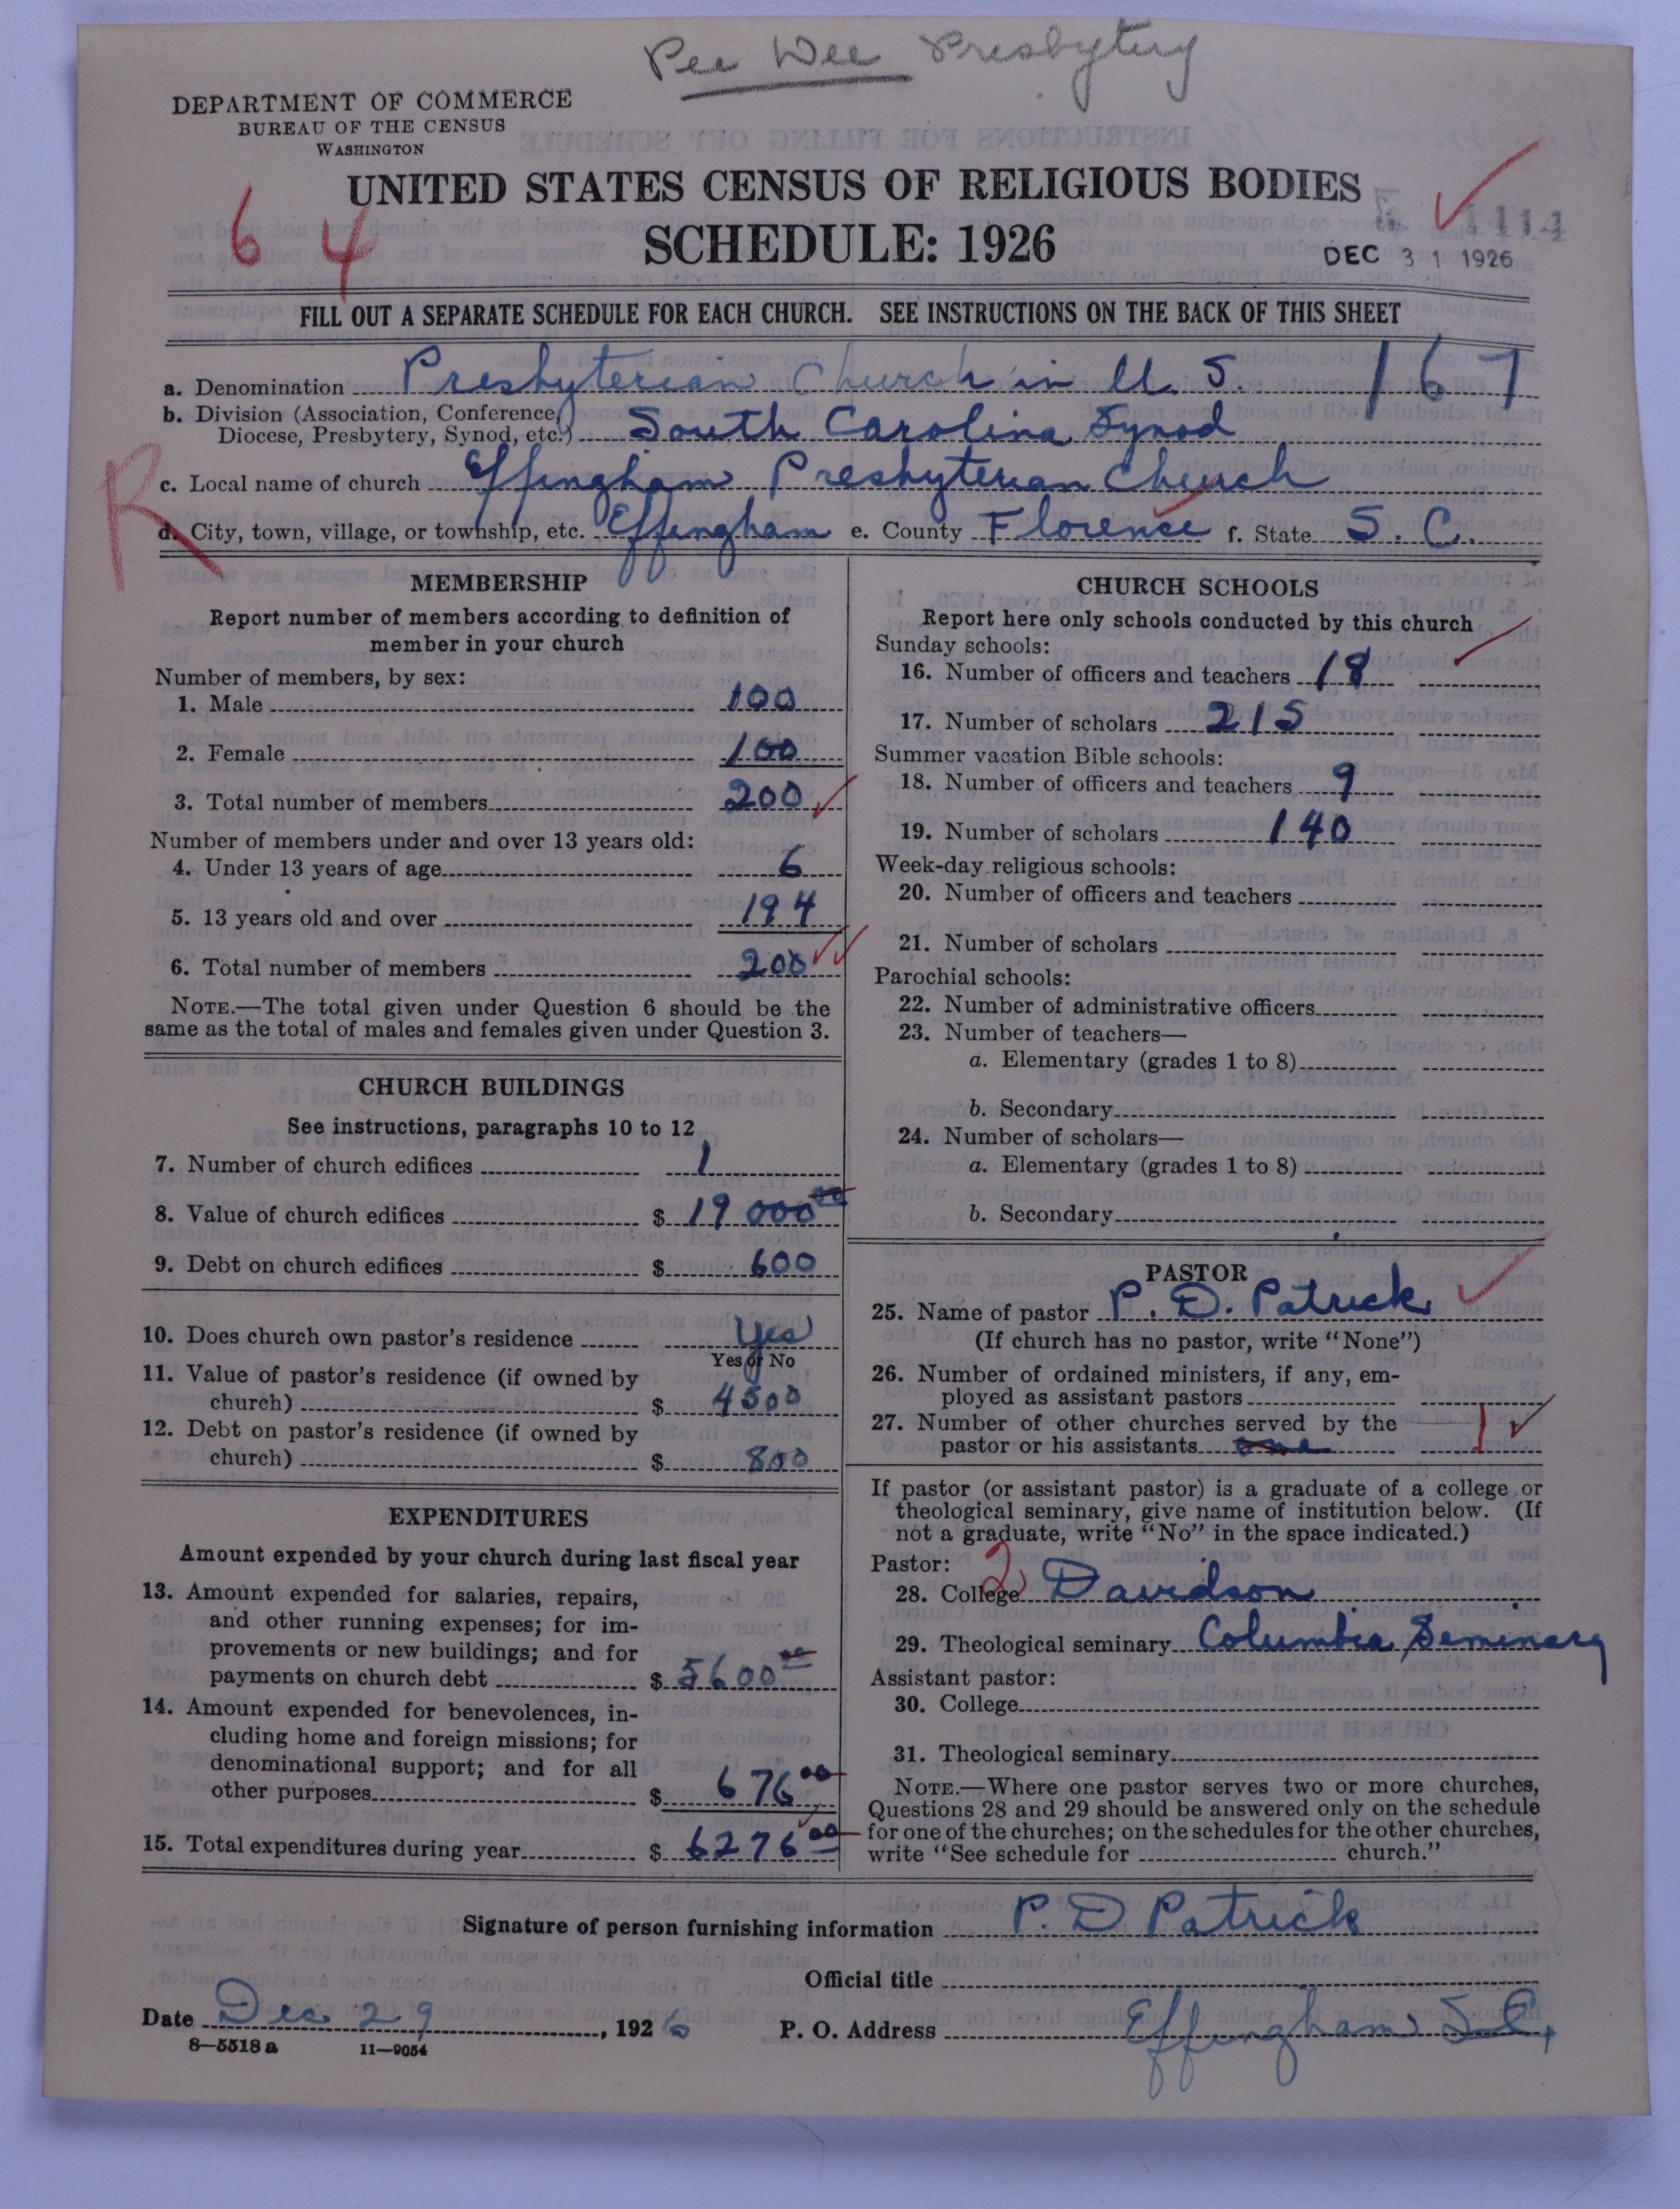 Pee Dee Presbytery
DEPARTMENT OF COMMERCE
BUREAU OF THE CENSUS
WASHINGTON
UNITED STATES CENSUS OF RELIGIOUS BODIES
SCHEDULE: 1926
64
1414
DEC 31 1926
FILL OUT A SEPARATE SCHEDULE FOR EACH CHURCH. SEE INSTRUCTIONS ON THE BACK OF THIS SHEET
a. Denomination Presbyterian Church in U. S. 167
b. Division (Association, Conference,
Diocese, Presbytery, Synod, etc.) South Carolina Synod
R
c. Local name of church Effingham Presbyterian Church
d. City, town, village, or township, etc. Effingham e. County Florence f. State S. C.
MEMBERSHIP
Report number of members according to definition of
member in your church
Number of members, by sex:
1. Male 100
2. Female 100
3. Total number of members 200
Number of members under and over 13 years old:
4. Under 13 years of age 6
5. 13 years old and over 194
6. Total number of members 200
NOTE.—The total given under Question 6 should be the
same as the total of males and females given under Question 3.
CHURCH BUILDINGS
See instructions, paragraphs 10 to 12
7. Number of church edifices 1
8. Value of church edifices $ 19 000 00
9. Debt on church edifices $ 600
10. Does church own pastor's residence Yes
Yes or No
11. Value of pastor's residence (if owned by
church) $ 4500
12. Debt on pastor's residence (if owned by
church) $ 800
EXPENDITURES
Amount expended by your church during last fiscal year
13. Amount expended for salaries, repairs,
and other running expenses; for im-
provements or new buildings; and for
payments on church debt $ 5600 00
14. Amount expended for benevolences, in-
cluding home and foreign missions; for
denominational support; and for all
other purposes $ 676 00
15. Total expenditures during year $ 6276 00
CHURCH SCHOOLS
Report here only schools conducted by this church
Sunday schools:
16. Number of officers and teachers 18
17. Number of scholars 215
Summer vacation Bible schools:
18. Number of officers and teachers 9
19. Number of scholars 140
Week-day religious schools:
20. Number of officers and teachers
21. Number of scholars
Parochial schools:
22. Number of administrative officers
23. Number of teachers—
a. Elementary (grades 1 to 8)
b. Secondary
24. Number of scholars—
a. Elementary (grades 1 to 8)
b. Secondary
PASTOR
25. Name of pastor P. D. Patrick
(If church has no pastor, write "None")
26. Number of ordained ministers, if any, em-
ployed as assistant pastors
27. Number of other churches served by the
pastor or his assistants one 1
If pastor (or assistant pastor) is a graduate of a college or
theological seminary, give name of institution below. (If
not a graduate, write "No" in the space indicated.)
Pastor:
28. College 2 Davidson
29. Theological seminary Columbia Seminary
Assistant pastor:
30. College
31. Theological seminary
NOTE.—Where one pastor serves two or more churches,
Questions 28 and 29 should be answered only on the schedule
for one of the churches; on the schedules for the other churches,
write "See schedule for church."
Signature of person furnishing information P. D Patrick
Official title
Date Dec 29, 1926 P. O. Address Effingham S C,
8—5518 a 11—9054